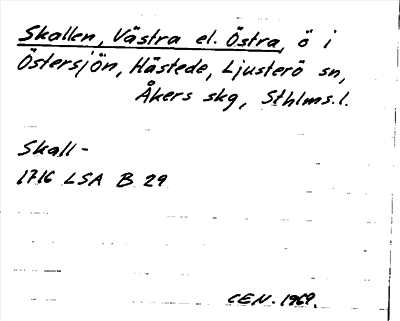 Skallen, Västra el. Östra, ö i
Östersjön, Hästede, Ljusterö sn,
Åkers skg, Sthlms.l.
Skall-
1716 LSA B 29
CEN. 1969.